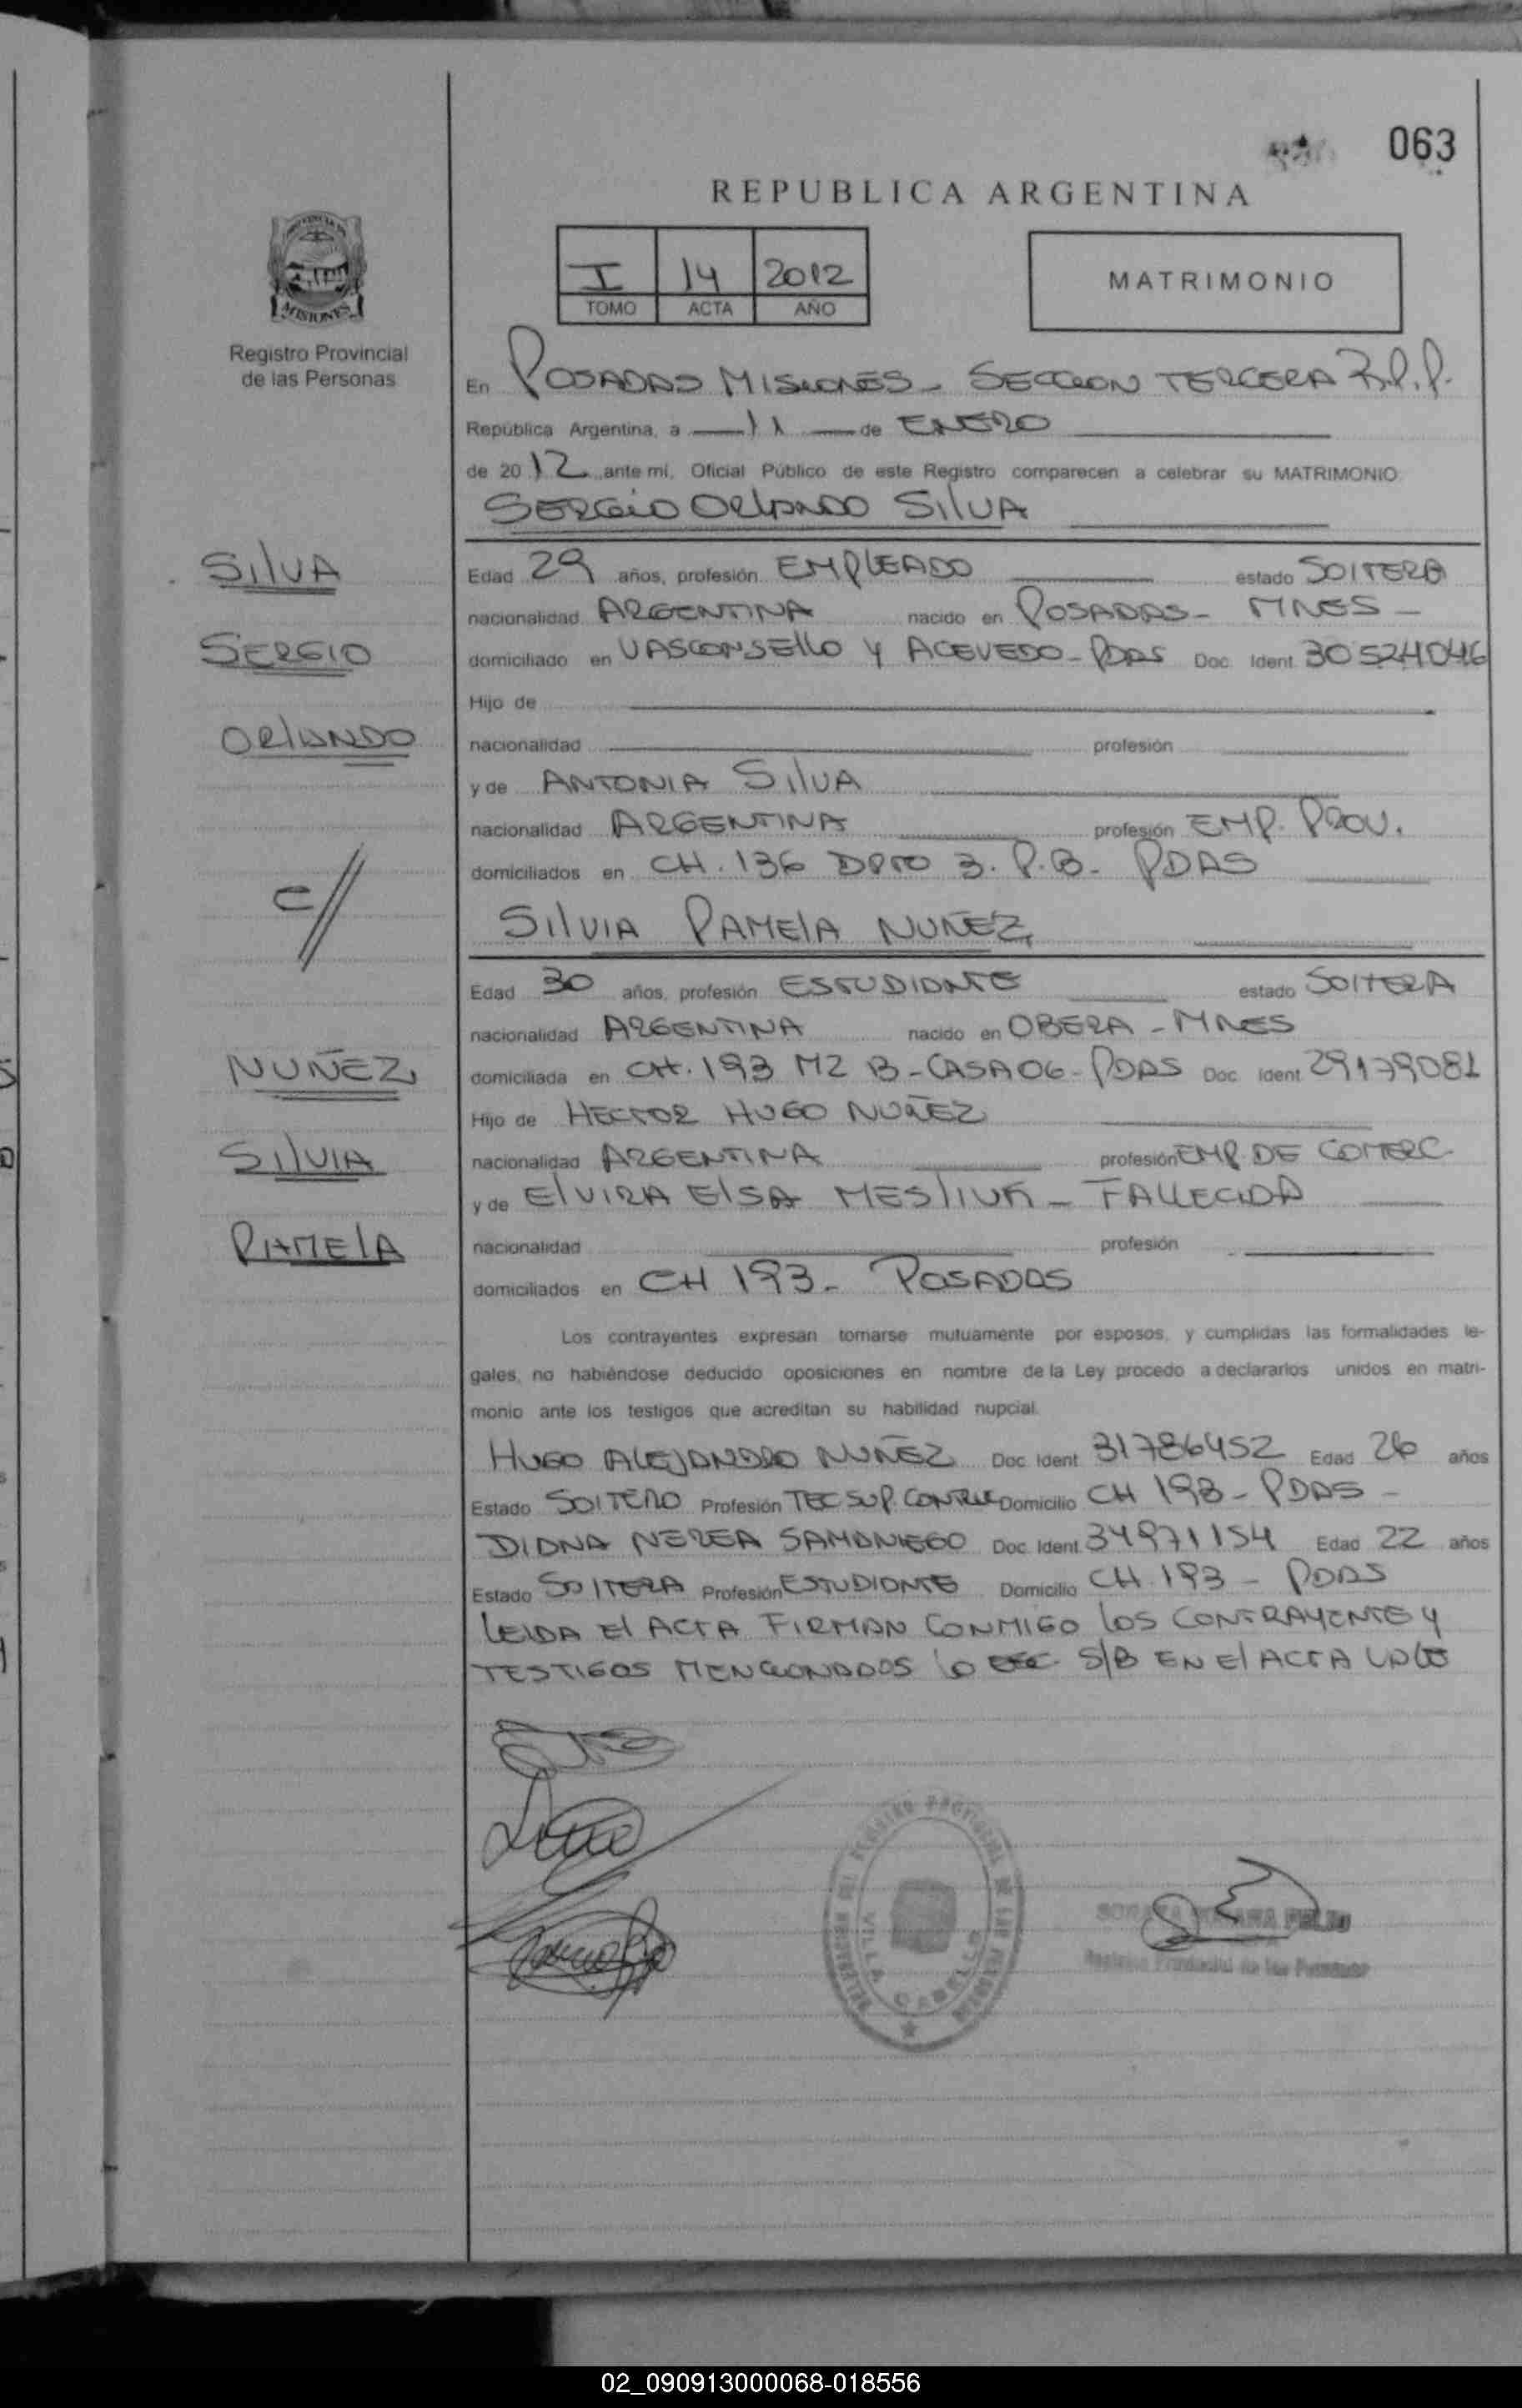 063
REPUBLICA ARGENTINA
I 14 2012
TOMO ACTA AÑO
MATRIMONIO
MISIONES
Registro Provincial
de las Personas
En POSADAS MISIONES - SECCION TERCERA R.P.P.
República Argentina, a 11 de ENERO
de 2012 ante mí, Oficial Público de este Registro comparecen a celebrar su MATRIMONIO
SERGIO ORLANDO SILVA
SILVA
SERGIO
ORLANDO
c//
NUÑEZ
SILVIA
PAMELA
Edad 29 años, profesión EMPLEADO estado SOLTERO
nacionalidad ARGENTINA nacido en POSADAS - MNES -
domiciliado en VASCONSELLO Y ACEVEDO - PDAS Doc. Ident. 30524046
Hijo de
nacionalidad profesión
y de ANTONIA SILVA
nacionalidad ARGENTINA profesión EMP. PROV.
domiciliados en CH. 136 DPTO 3. P.B. - PDAS
SILVIA PAMELA NUÑEZ
Edad 30 años, profesión ESTUDIANTE estado SOLTERA
nacionalidad ARGENTINA nacido en OBERA - MNES
domiciliada en CH. 193 MZ B - CASA 06 - PDAS Doc. Ident. 29179081
Hijo de HECTOR HUGO NUÑEZ
nacionalidad ARGENTINA profesión EMP. DE COMERC.
y de ELVIRA ELSA - FALLECIDA
nacionalidad profesión
domiciliados en CH 193 - POSADAS
Los contrayentes expresan tomarse mutuamente por esposos, y cumplidas las formalidades le-
gales, no habiéndose deducido oposiciones en nombre de la Ley procedo a declararlos unidos en matri-
monio ante los testigos que acreditan su habilidad nupcial.
HUGO ALEJANDRO NUÑEZ Doc. Ident. 31786452 Edad 26 años
Estado SOLTERO Profesión TEC SUP. Domicilio CH 193 - PDAS -
DIANA NEREA SAMANIEGO Doc. Ident. 34971154 Edad 22 años
Estado SOLTERA Profesión ESTUDIANTE Domicilio CH. 193 - PDAS
LEIDA EL ACTA FIRMAN CONMIGO LOS CONTRAYENTE Y
TESTIGOS MENCIONADOS S/B EN EL ACTA VALE
VILLA CABELLO
Registro Provincial de las Personas
02_090913000068-018556